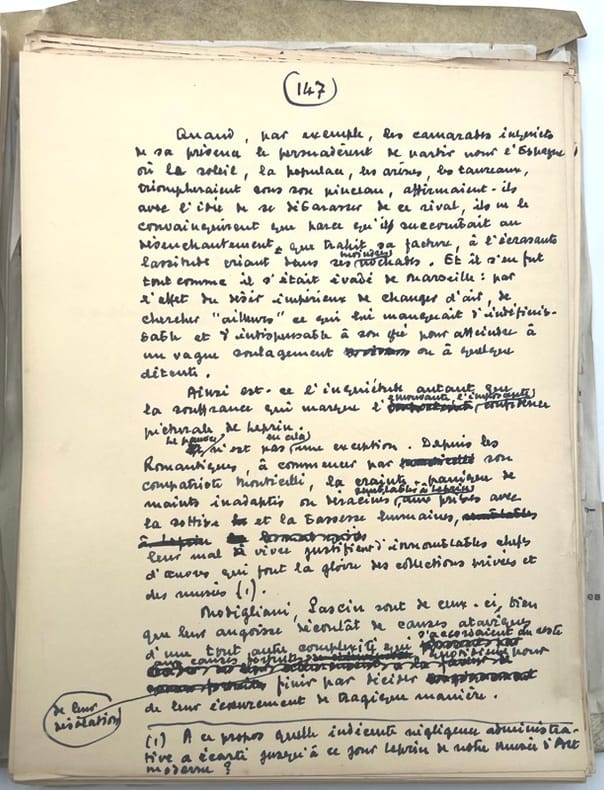 (147)
Quand, par exemple, les camarades inquiets
de sa présence le persuadèrent de partir pour l'Espagne
où le soleil, la populace, les arènes, les taureaux,
triompheraient sous son pinceau, affirmaient-ils
avec l'idée de se débarasser de ce rival, ils ne le
convainquirent que parce qu'il succombait au
désenchantement que trahit sa facture, à l'écrasante
lassitude criant dans ses moindres pochades. Et il s'en fut
tout comme il s'était évadé de Marseille : par
l'effet du désir impérieux de changer d'air, de
chercher "ailleurs" ce qui lui manquait d'indéfinis-
sable et d'indispensable à son gré pour atteindre à
un vague soulagement ou à quelque
détente.
Ainsi est-ce l'inquiétude autant que
la souffrance qui marque l'émouvante l'importante confidence
picturale de Leprin.
Le pauvre n'est pas en cela une exception. Depuis les
Romantiques, à commencer par son
compatriote Monticelli, la crainte panique de
maints inadaptés ou déracinés, semblables à Leprin, aux prises avec
la sottise et la bassesse humaines,
leur mal de vivre justifient d'innombrables chefs
d'œuvre qui font la gloire des collections privées et
des musées (1).
Modigliani, Pascin sont de ceux-ci, bien
que leur angoisse découlât de causes ataviques
d'une tout autre complexité qui s'accordaient du reste
pour
finir par décider
de leur désolation
de leur écœurement de tragique manière.
(1) A ce propos quelle indécente négligence administra-
tive a écarté jusqu'à ce jour Leprin de notre Musée d'Art
moderne ?